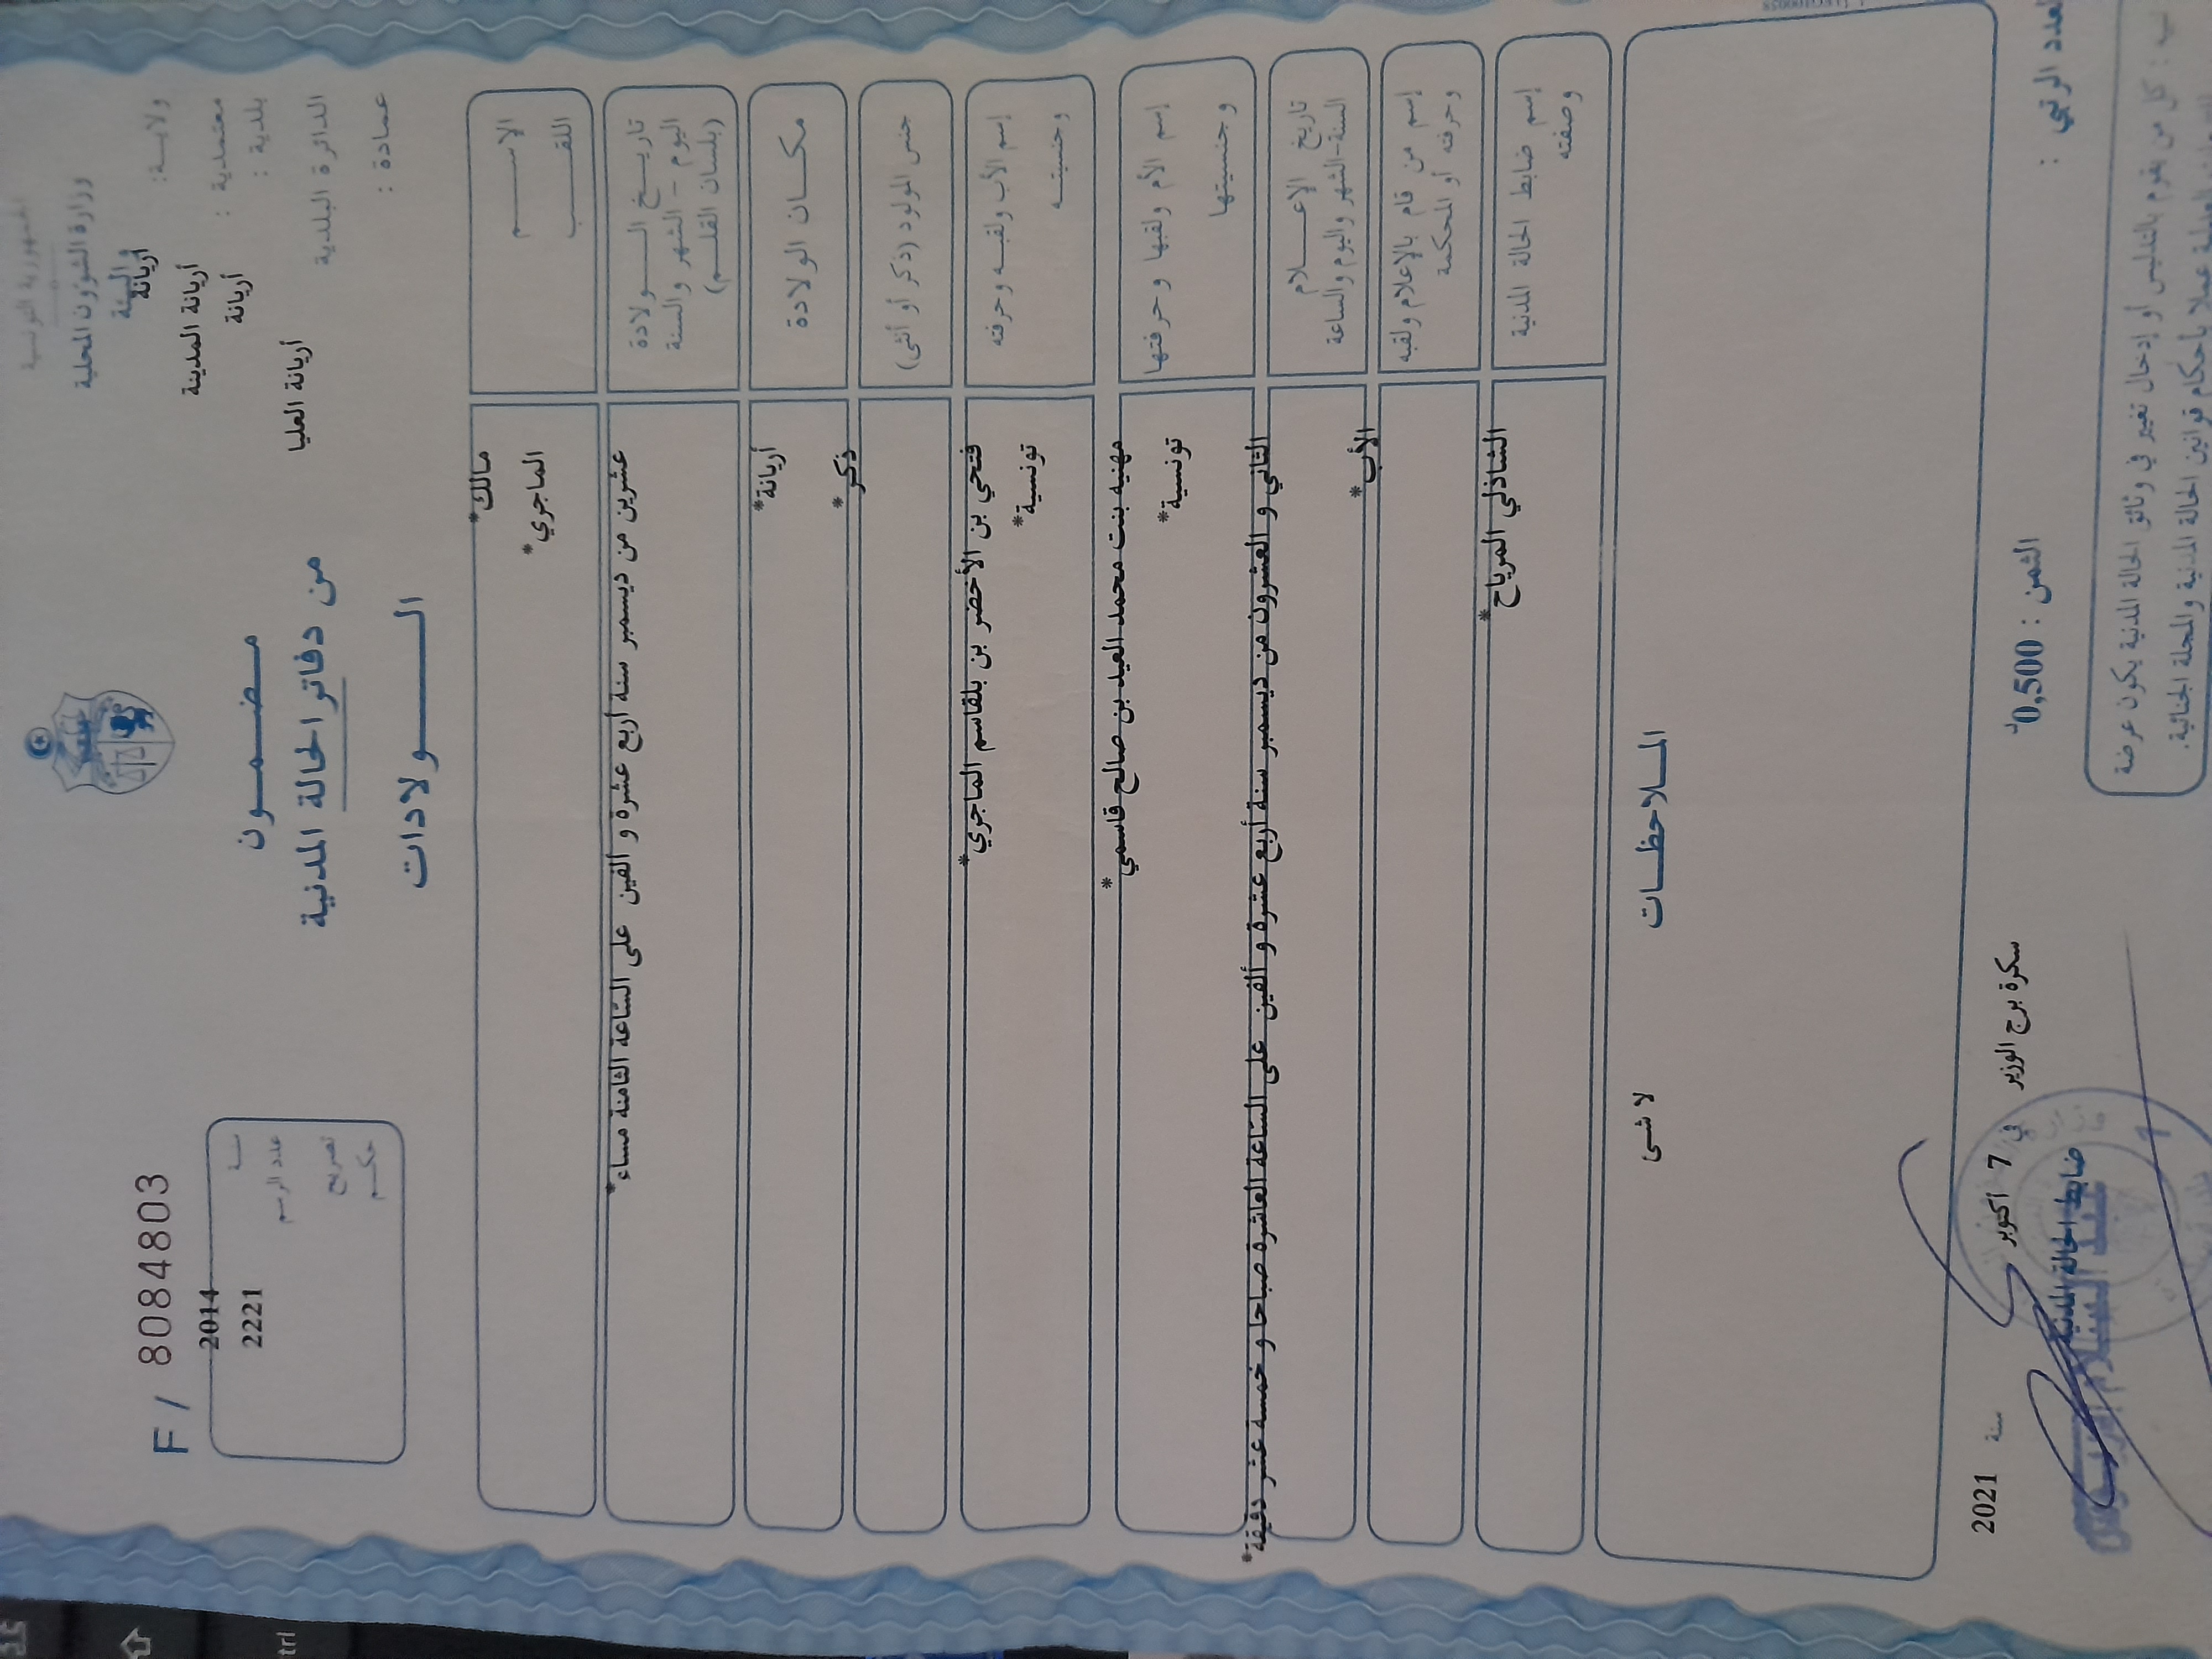 الجمهورية التونسية
وزارة الشؤون المحلية
والبيئة
ولايــة: أريانة
معتمدية : أريانة المدينة
بلدية : أريانة
الدائرة البلدية أريانة العليا
عمادة :
مضمــون
من دفاتر الحالة المدنية
الــولادات
F / 8084803
سنة 2014
عدد الرسم 2221
تصريح
حكم
الاســم مالك*
اللقــب الماجري*
تاريــخ الــولادة عشرين من ديسمبر سنة أربع عشرة و ألفين على الساعة الثامنة مساء*
اليوم - الشهر والسنة
(بلسان القلــم)
مكــان الولادة أريانة*
جنس المولود (ذكر أو أنثى) ذكر*
إسم الأب ولقبــه وحرفته فتحي بن الأخضر بن بلقاسم الماجري*
وجنسيتــه تونسية*
إسم الأم ولقبها وحرفتها مهنيه بنت محمد العيد بن صالح قاسمي*
وجنسيتها تونسية*
تاريخ الإعــلام الثاني و العشرون من ديسمبر سنة أربع عشرة و ألفين على الساعة العاشرة صباحا و خمسة عشر دقيقة*
السنة-الشهر واليوم والساعة
إسم من قام بالإعلام ولقبه الأب*
وحرفته أو المحكمة
إسم ضابط الحالة المدنية الشاذلي المرياح*
وصفته
المــلاحظــات
لا شى
سكرة برج الوزير في 7 أكتوبر سنة 2021
الثمن : 0,500د
ضابط الحالة المدنية
العدد الرتبي :
كل من يقوم بالتدليس أو إدخال تغيير في وثائق الحالة المدنية يكون عرضة
عملا بأحكام قوانين الحالة المدنية والمجلة الجنائية.